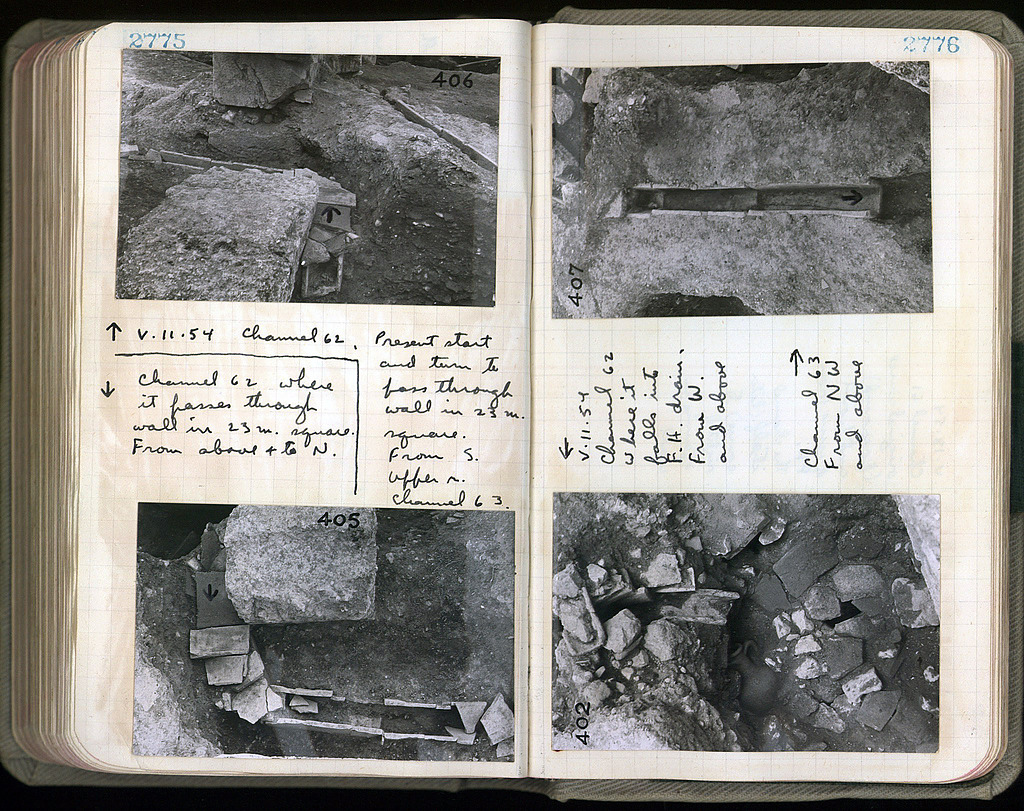 2775
406
↑ V.11.54 Channel 62.
Present start
and turn to
pass through
wall in 23 m.
square.
From S.
Upper r.
Channel 63.
↓ Channel 62 where
it passes through
wall in 23 m. square.
From above + to N.
405
2776
407
← V.11.54
Channel 62
where it
falls into
F.H. drain.
From W.
and above
→ Channel 63
From NW
and above
402